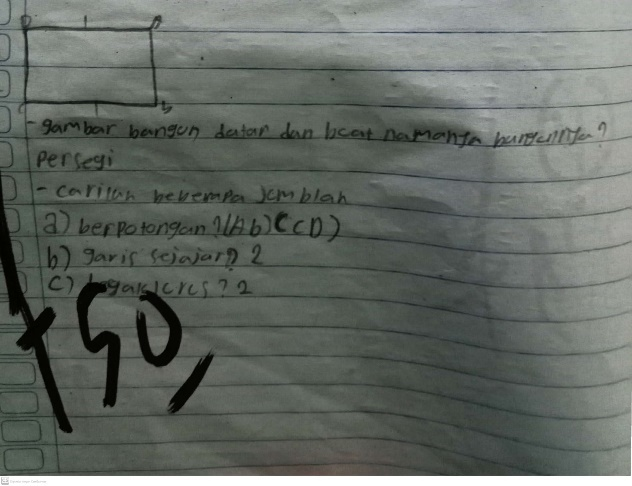 - gambar bangun datar dan buat namanya bangunnya?
persegi
- carilah beberapa jumblah
a) berpotongan? (Ab) (CD)
b) garis sejajar? 2
c) tegak lurus? 2
50,